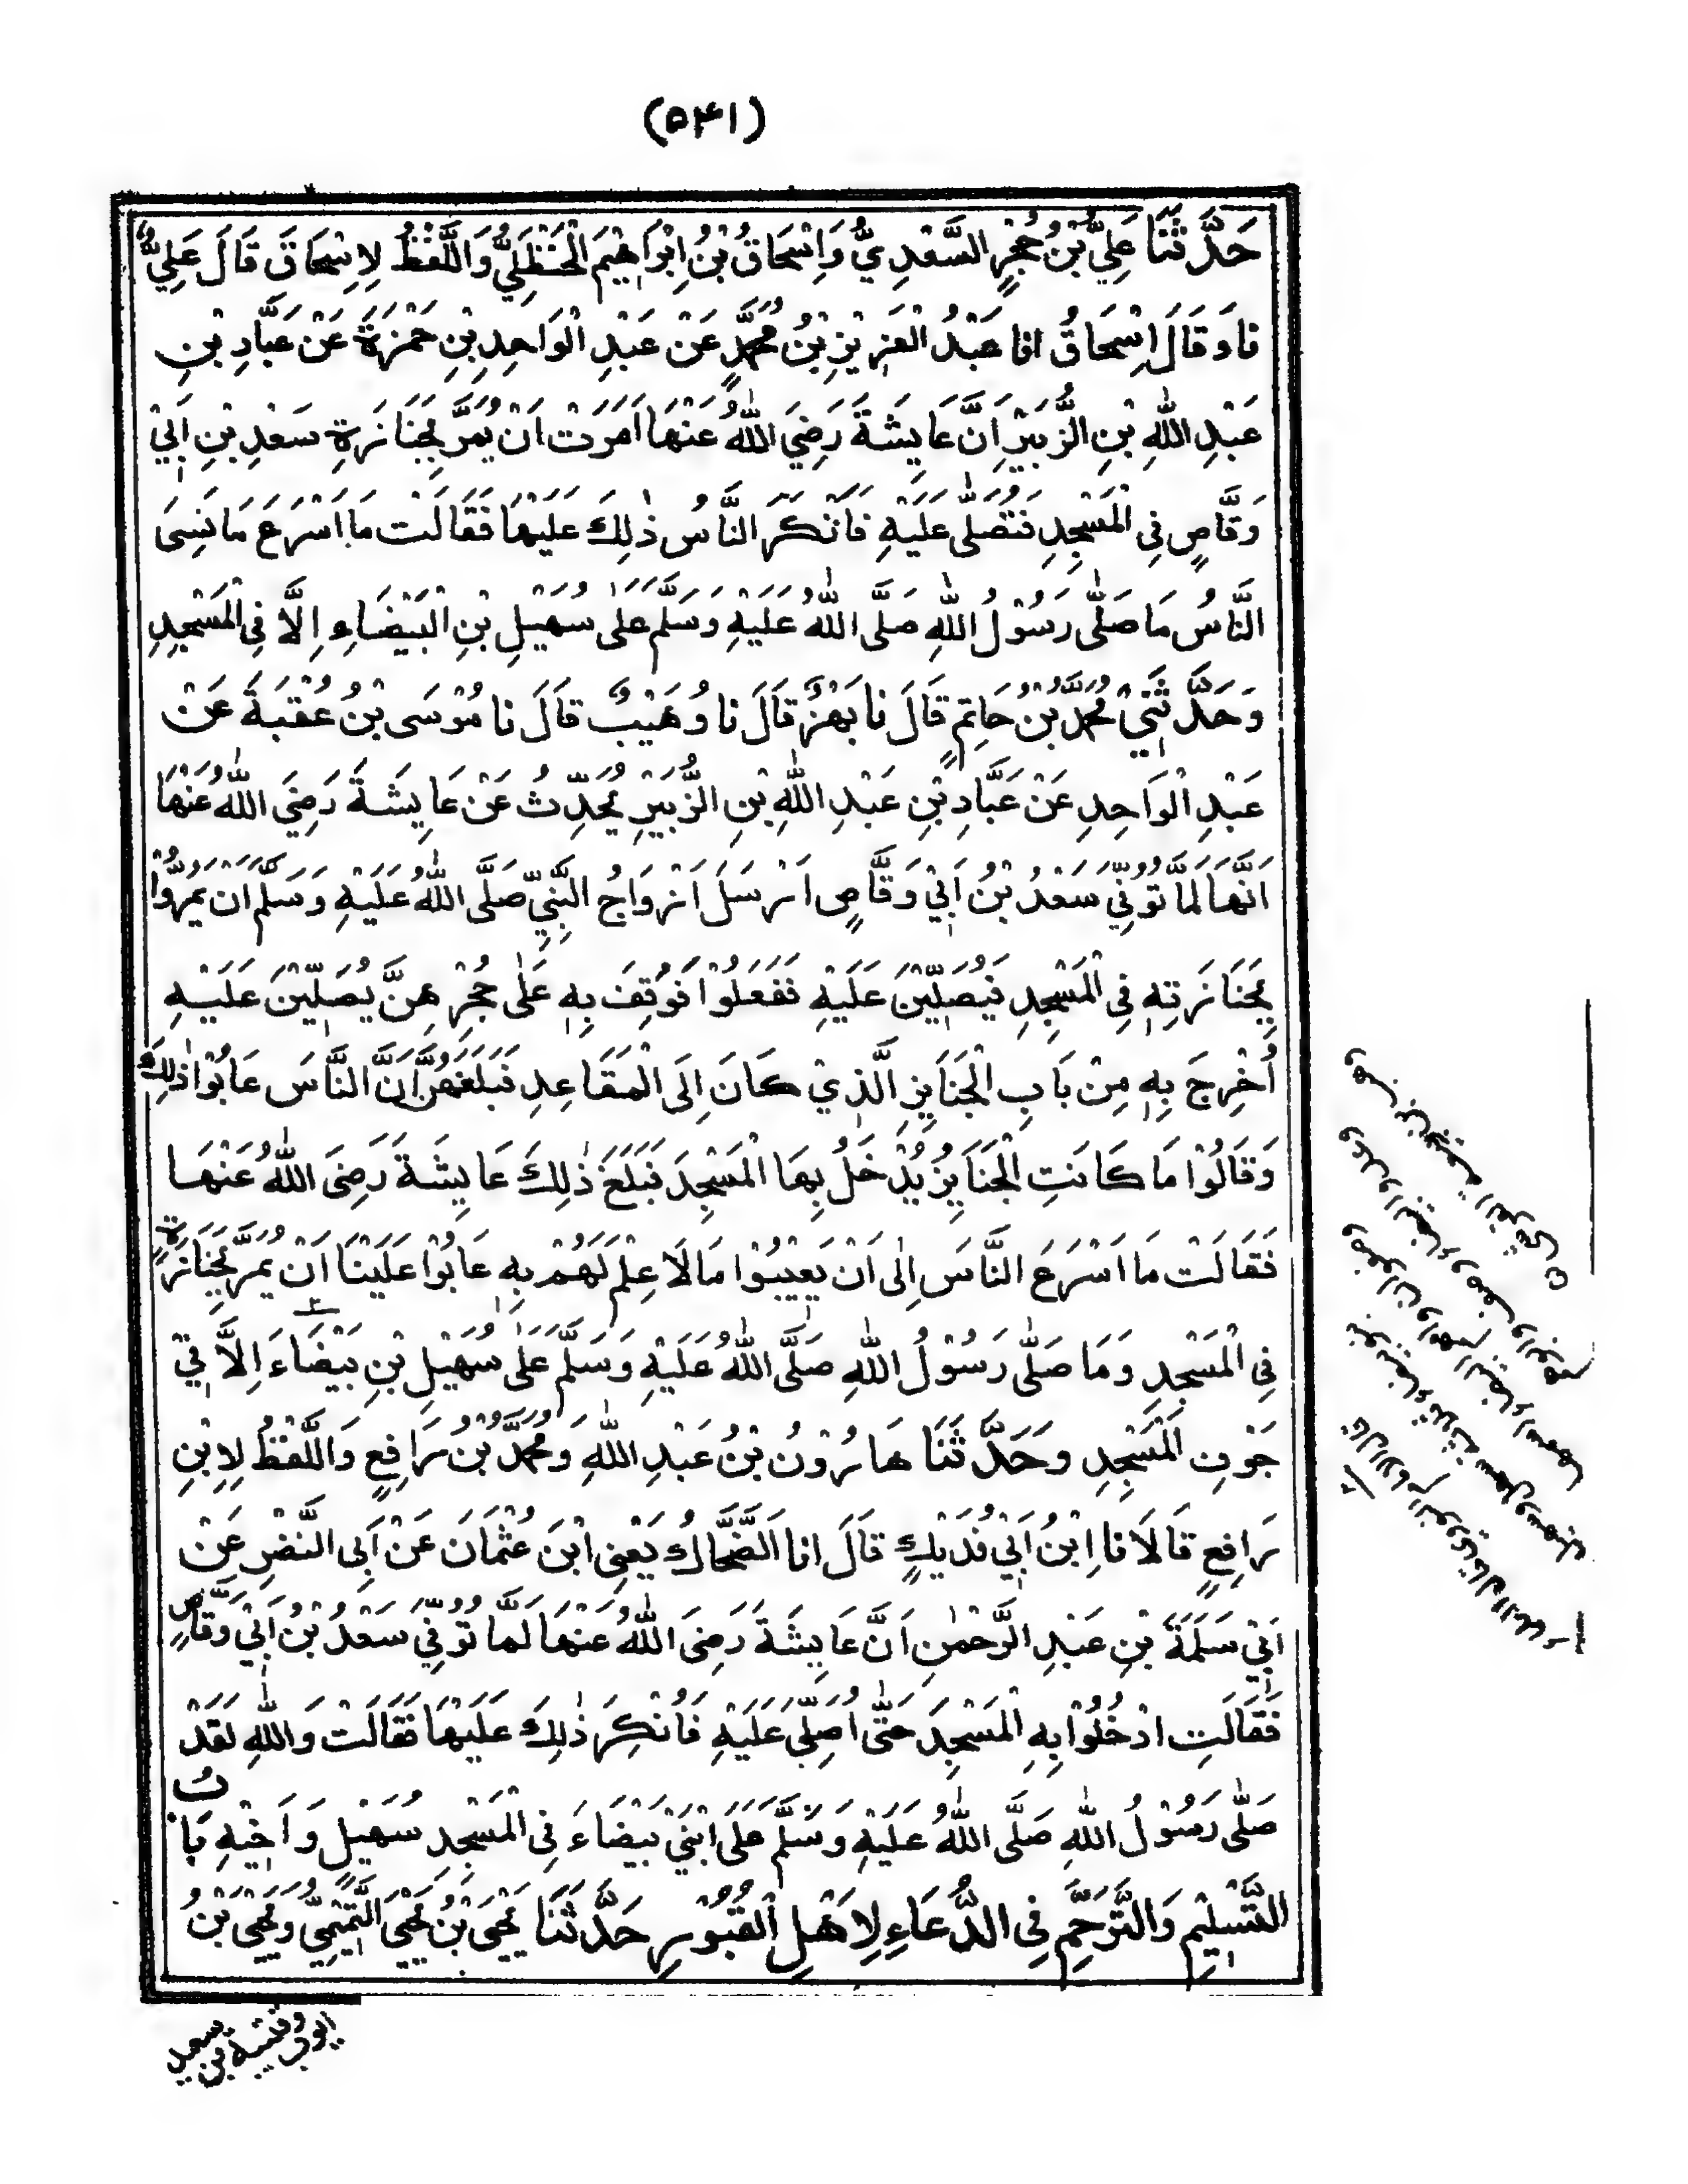 (۵۴۱)
حَدَّثَنَا عَلِيُّ بْنُ حُجْرٍ السَّعْدِيُّ وَاِسْحَاقُ بْنُ اِبْرَاهِيْمَ الْحَنْظَلِيُّ وَاللَّفْظُ لِاِسْحَاقَ قَالَ عَلِيٌّ
نا وَقَالَ اِسْحَاقُ انا عَبْدُ الْعَزِيْزِ بْنُ مُحَمَّدٍ عَنْ عَبْدِ الْوَاحِدِ بْنِ حَمْزَةَ عَنْ عَبَّادِ بْنِ
عَبْدِ اللّٰهِ بْنِ الزُّبَيْرِ اَنَّ عَايِشَةَ رَضِيَ اللّٰهُ عَنْهَا اَمَرَتْ اَنْ يُمَرَّ بِجَنَازَةِ سَعْدِ بْنِ اَبِيْ
وَقَّاصٍ فِي الْمَسْجِدِ فَتُصَلّٰى عَلَيْهِ فَانْكَرَ النَّاسُ ذٰلِكَ عَلَيْهَا فَقَالَتْ مَا اَسْرَعَ مَا نَسِىَ
النَّاسُ مَا صَلّٰى رَسُوْلُ اللّٰهِ صَلَّى اللّٰهُ عَلَيْهِ وَسَلَّمَ عَلٰى سُهَيْلِ بْنِ الْبَيْضَاءِ اِلَّا فِي الْمَسْجِدِ
وَحَدَّثَنِيْ مُحَمَّدُ بْنُ حَاتِمٍ قَالَ نا بَهْزٌ قَالَ نا وُهَيْبٌ قَالَ نا مُوْسَى بْنُ عُقْبَةَ عَنْ
عَبْدِ الْوَاحِدِ عَنْ عَبَّادِ بْنِ عَبْدِ اللّٰهِ بْنِ الزُّبَيْرِ يُحَدِّثُ عَنْ عَايِشَةَ رَضِيَ اللّٰهُ عَنْهَا
اَنَّهَا لَمَّا تُوُفِّيَ سَعْدُ بْنُ اَبِيْ وَقَّاصٍ اَرْسَلَ اَزْوَاجُ النَّبِيِّ صَلَّى اللّٰهُ عَلَيْهِ وَسَلَّمَ اَنْ يَمُرُّوْا
بِجَنَازَتِهٖ فِي الْمَسْجِدِ فَيُصَلِّيْنَ عَلَيْهِ فَفَعَلُوْا فَوُقِفَ بِهٖ عَلٰى حُجَرِهِنَّ يُصَلِّيْنَ عَلَيْهِ
اُخْرِجَ بِهٖ مِنْ بَابِ الْجَنَايِزِ الَّذِيْ كَانَ اِلَى الْمَقَاعِدِ فَبَلَغَهُنَّ اَنَّ النَّاسَ عَابُوْا ذٰلِكَ
وَقَالُوْا مَا كَانَتِ الْجَنَايِزُ يُدْخَلُ بِهَا الْمَسْجِدَ فَبَلَغَ ذٰلِكَ عَايِشَةَ رَضِيَ اللّٰهُ عَنْهَا
فَقَالَتْ مَا اَسْرَعَ النَّاسَ اِلٰى اَنْ يَعِيْبُوْا مَا لَا عِلْمَ لَهُمْ بِهٖ عَابُوْا عَلَيْنَا اَنْ يُمَرَّ بِجَنَازَةٍ
فِي الْمَسْجِدِ وَمَا صَلّٰى رَسُوْلُ اللّٰهِ صَلَّى اللّٰهُ عَلَيْهِ وَسَلَّمَ عَلٰى سُهَيْلِ بْنِ بَيْضَاءَ اِلَّا فِيْ
جَوْفِ الْمَسْجِدِ وَحَدَّثَنَا هَارُوْنُ بْنُ عَبْدِ اللّٰهِ وَمُحَمَّدُ بْنُ رَافِعٍ وَاللَّفْظُ لِابْنِ
رَافِعٍ قَالَا نا ابْنُ اَبِيْ فُدَيْكٍ قَالَ انا الضَّحَّاكُ يَعْنِي ابْنَ عُثْمَانَ عَنْ اَبِي النَّضْرِ عَنْ
اَبِيْ سَلَمَةَ بْنِ عَبْدِ الرَّحْمٰنِ اَنَّ عَايِشَةَ رَضِيَ اللّٰهُ عَنْهَا لَمَّا تُوُفِّيَ سَعْدُ بْنُ اَبِيْ وَقَّاصٍ
فَقَالَتِ ادْخُلُوْا بِهِ الْمَسْجِدَ حَتّٰى اُصَلِّيَ عَلَيْهِ فَاُنْكِرَ ذٰلِكَ عَلَيْهَا فَقَالَتْ وَاللّٰهِ لَقَدْ
صَلّٰى رَسُوْلُ اللّٰهِ صَلَّى اللّٰهُ عَلَيْهِ وَسَلَّمَ عَلَى ابْنَيْ بَيْضَاءَ فِي الْمَسْجِدِ سُهَيْلٍ وَاَخِيْهِ بَابُ
التَّسْلِيْمِ وَالتَّرَحُّمِ فِي الدُّعَاءِ لِاَهْلِ الْقُبُوْرِ حَدَّثَنَا يَحْيَى بْنُ يَحْيَى التَّمِيْمِيُّ وَيَحْيَى بْنُ
ايوب وقتيبة بن سعيد
قال الامام النووي قال العلماء
بنو بيضاء ثلاثة سهل وسهيل
وصفوان وامهم البيضاء اسمها
دعد والبيضاء وصف وابوهم
وهب بن ربيعة القرشي